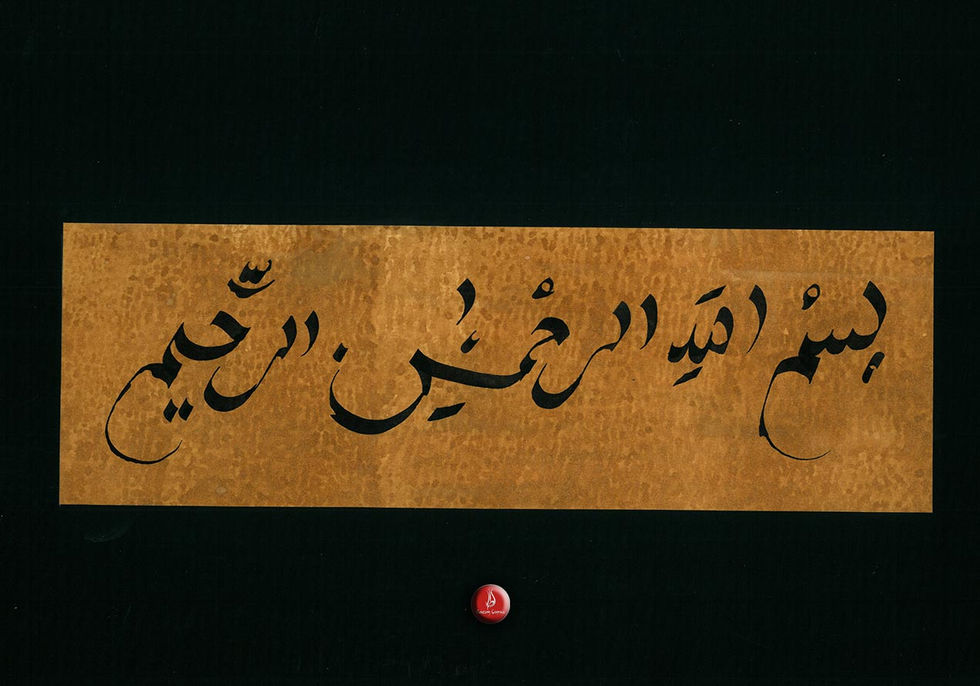 بِسْمِ اللهِ الرحْمٰنِ الرَّحیمِ